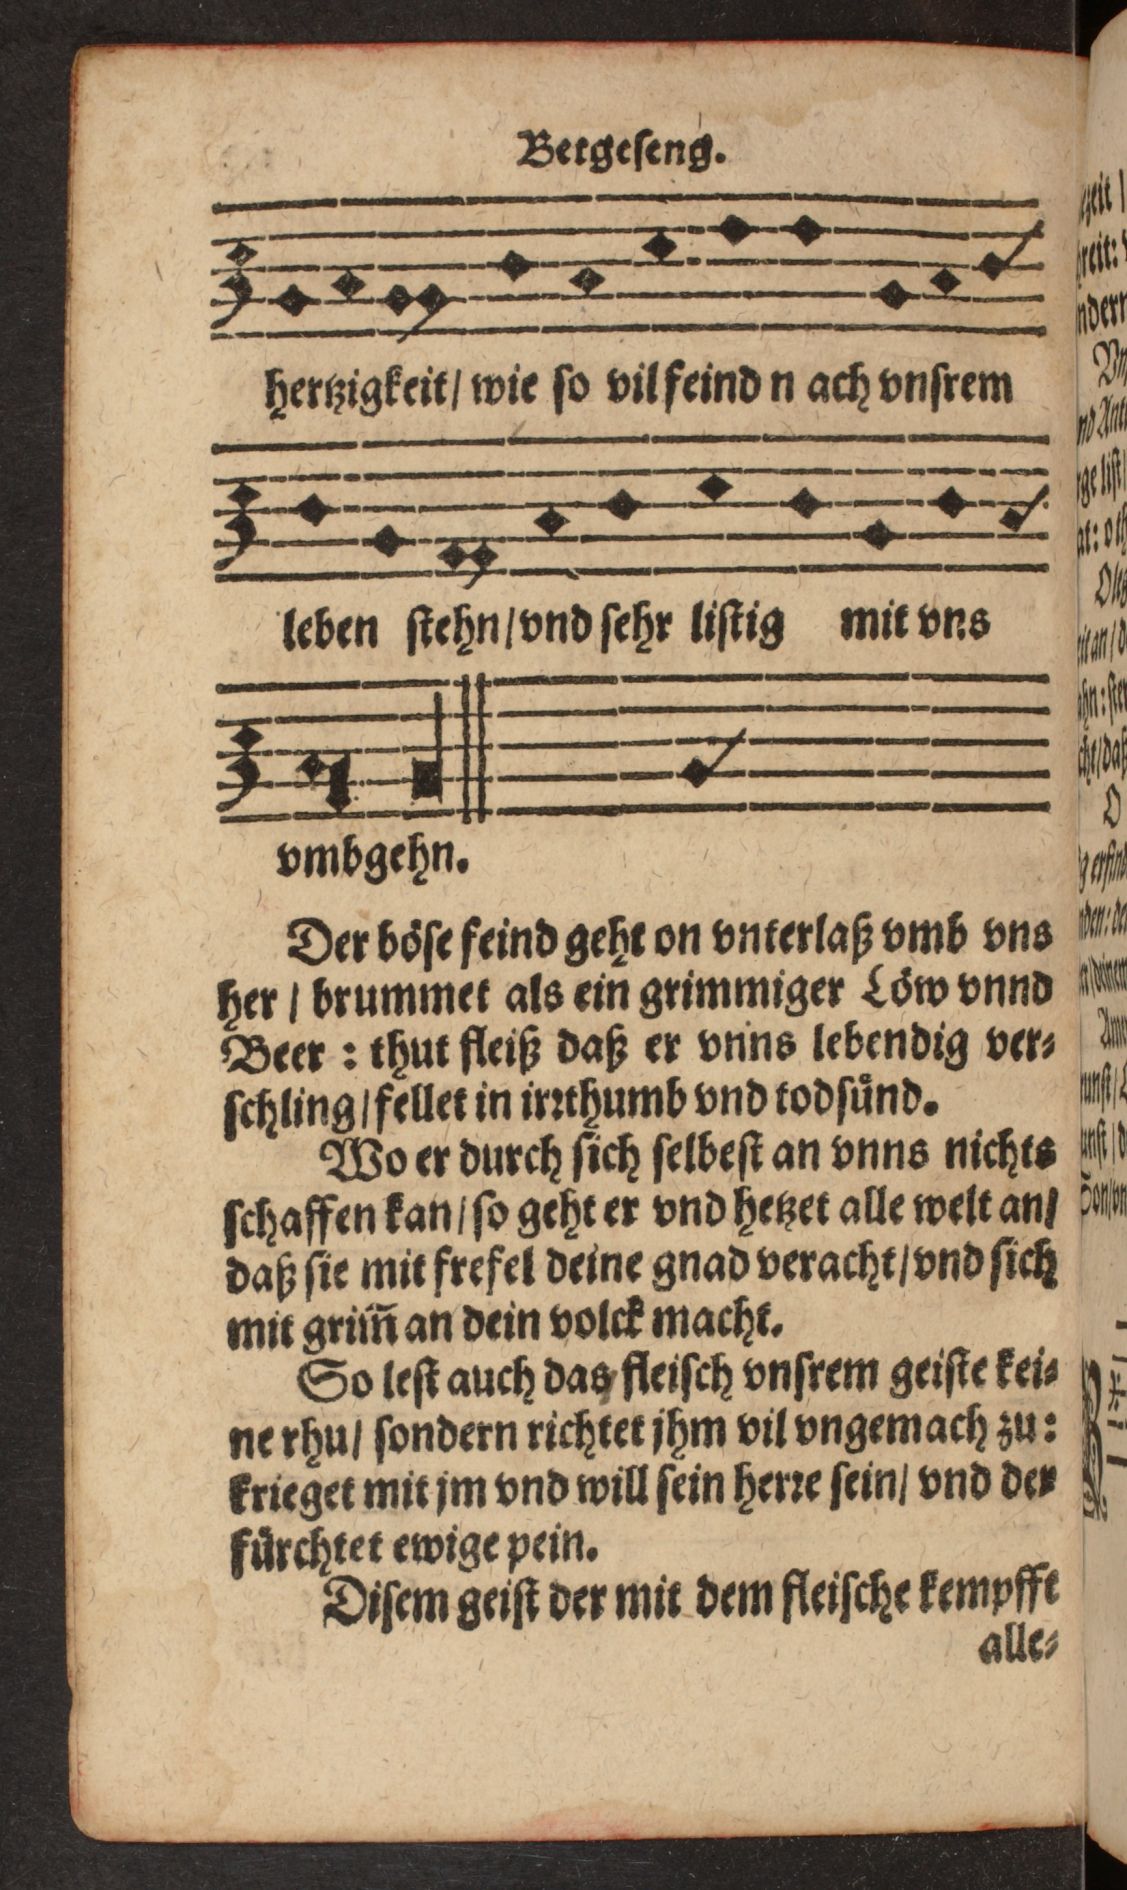 Betgeseng.
hertzigkeit/ wie so vil feind n ach vnsrem
leben stehn/vnd sehr listig mit vns
vmbgehn.
Der böse feind geht on vnterlaß vmb vns
her / brummet als ein grimmiger Löw vnnd
Beer : thut fleiß daß er vnns lebendig ver⸗
schling/fellet in irꝛthumb vnd todsuͤnd.
Wo er durch sich selbest an vnns nichts
schaffen kan/so geht er vnd hetzet alle welt an/
daß sie mit frefel deine gnad veracht/vnd sich
mit grim̃ an dein volck macht.
So lest auch das fleisch vnsrem geiste kei⸗
ne rhu/ sondern richtet jhm vil vngemach zu:
krieget mit jm vnd will sein herꝛe sein/ vnd der
fuͤrchtet ewige pein.
Disem geist der mit dem fleische kempfft
alle⸗